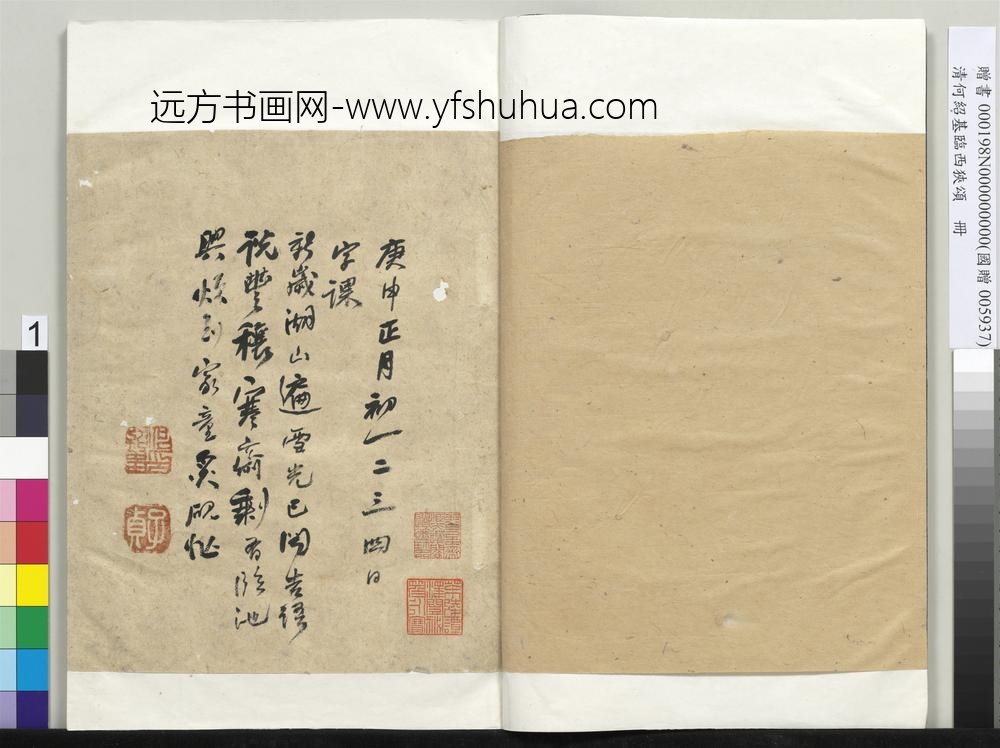 远方书画网-www.yfshuhua.com
贈書 000198N000000000(國贈 005937)
清何紹基臨西狹頌 冊
1
庚申正月初一二三四日
字課
新歲湖山遍雪光已聞吉語
說豐穰寒齋剩有臨池
興煩到家童炙硯忙
子貞